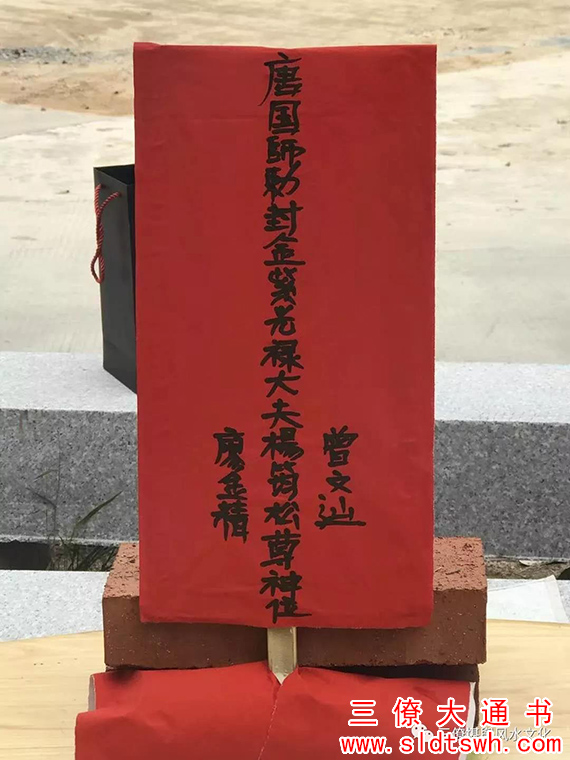 唐国師勅封金紫光禄大夫楊筠松尊神位
曾文辿
廖金精
三僚大通书
www.sldtswh.com
风水文化